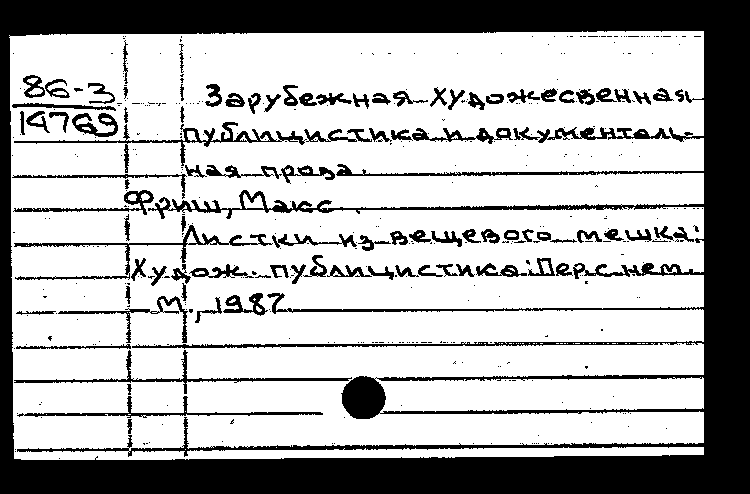 86-3
14769
Зарубежная художесвенная
публицистика и документаль-
ная проза.
Фриш, Макс.
Листки из вещевого мешка:
Худож. публицистика: Пер. с нем.
М., 1987.